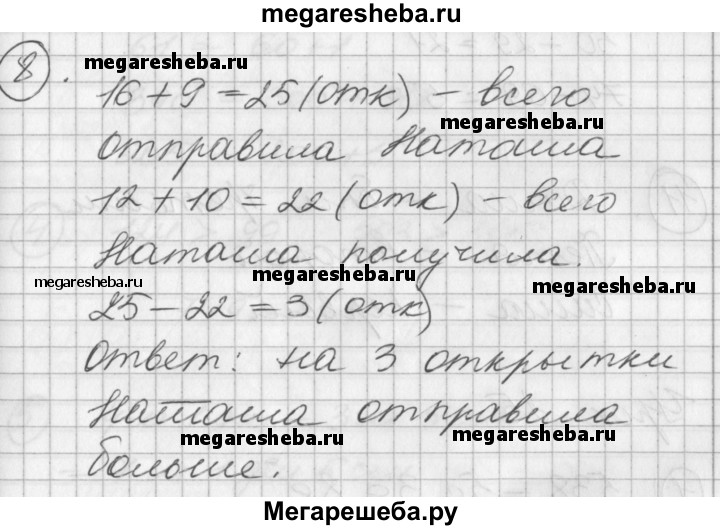 megaresheba.ru
8.
megaresheba.ru
16 + 9 = 25 (отк) – всего
megaresheba.ru
отправила Наташа
12 + 10 = 22 (отк) – всего
Наташа получила.
megaresheba.ru
megaresheba.ru
megaresheba.ru
25 – 22 = 3 (отк)
Ответ: на 3 открытки
Наташа отправила
megaresheba.ru
megaresheba.ru
больше.
Мегарешеба.ру